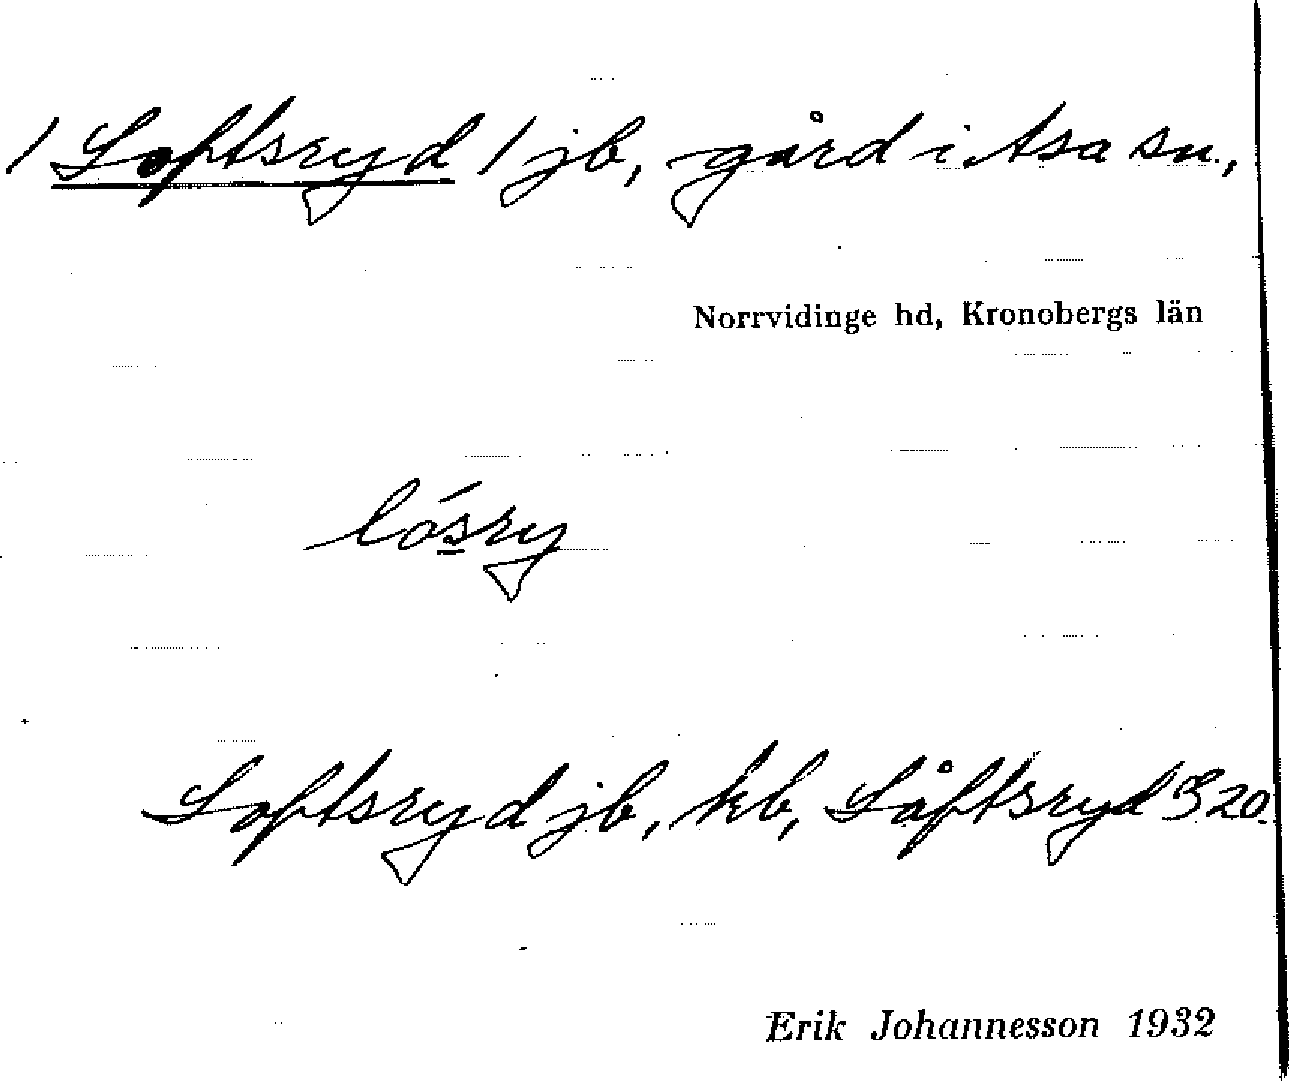 / Loftsryd / jb, gård i Asa sn,
Norrvidinge hd, Kronobergs län
lósry
Loftsryd jb, kb, Låftsryd S 20.
Erik Johannesson 1932